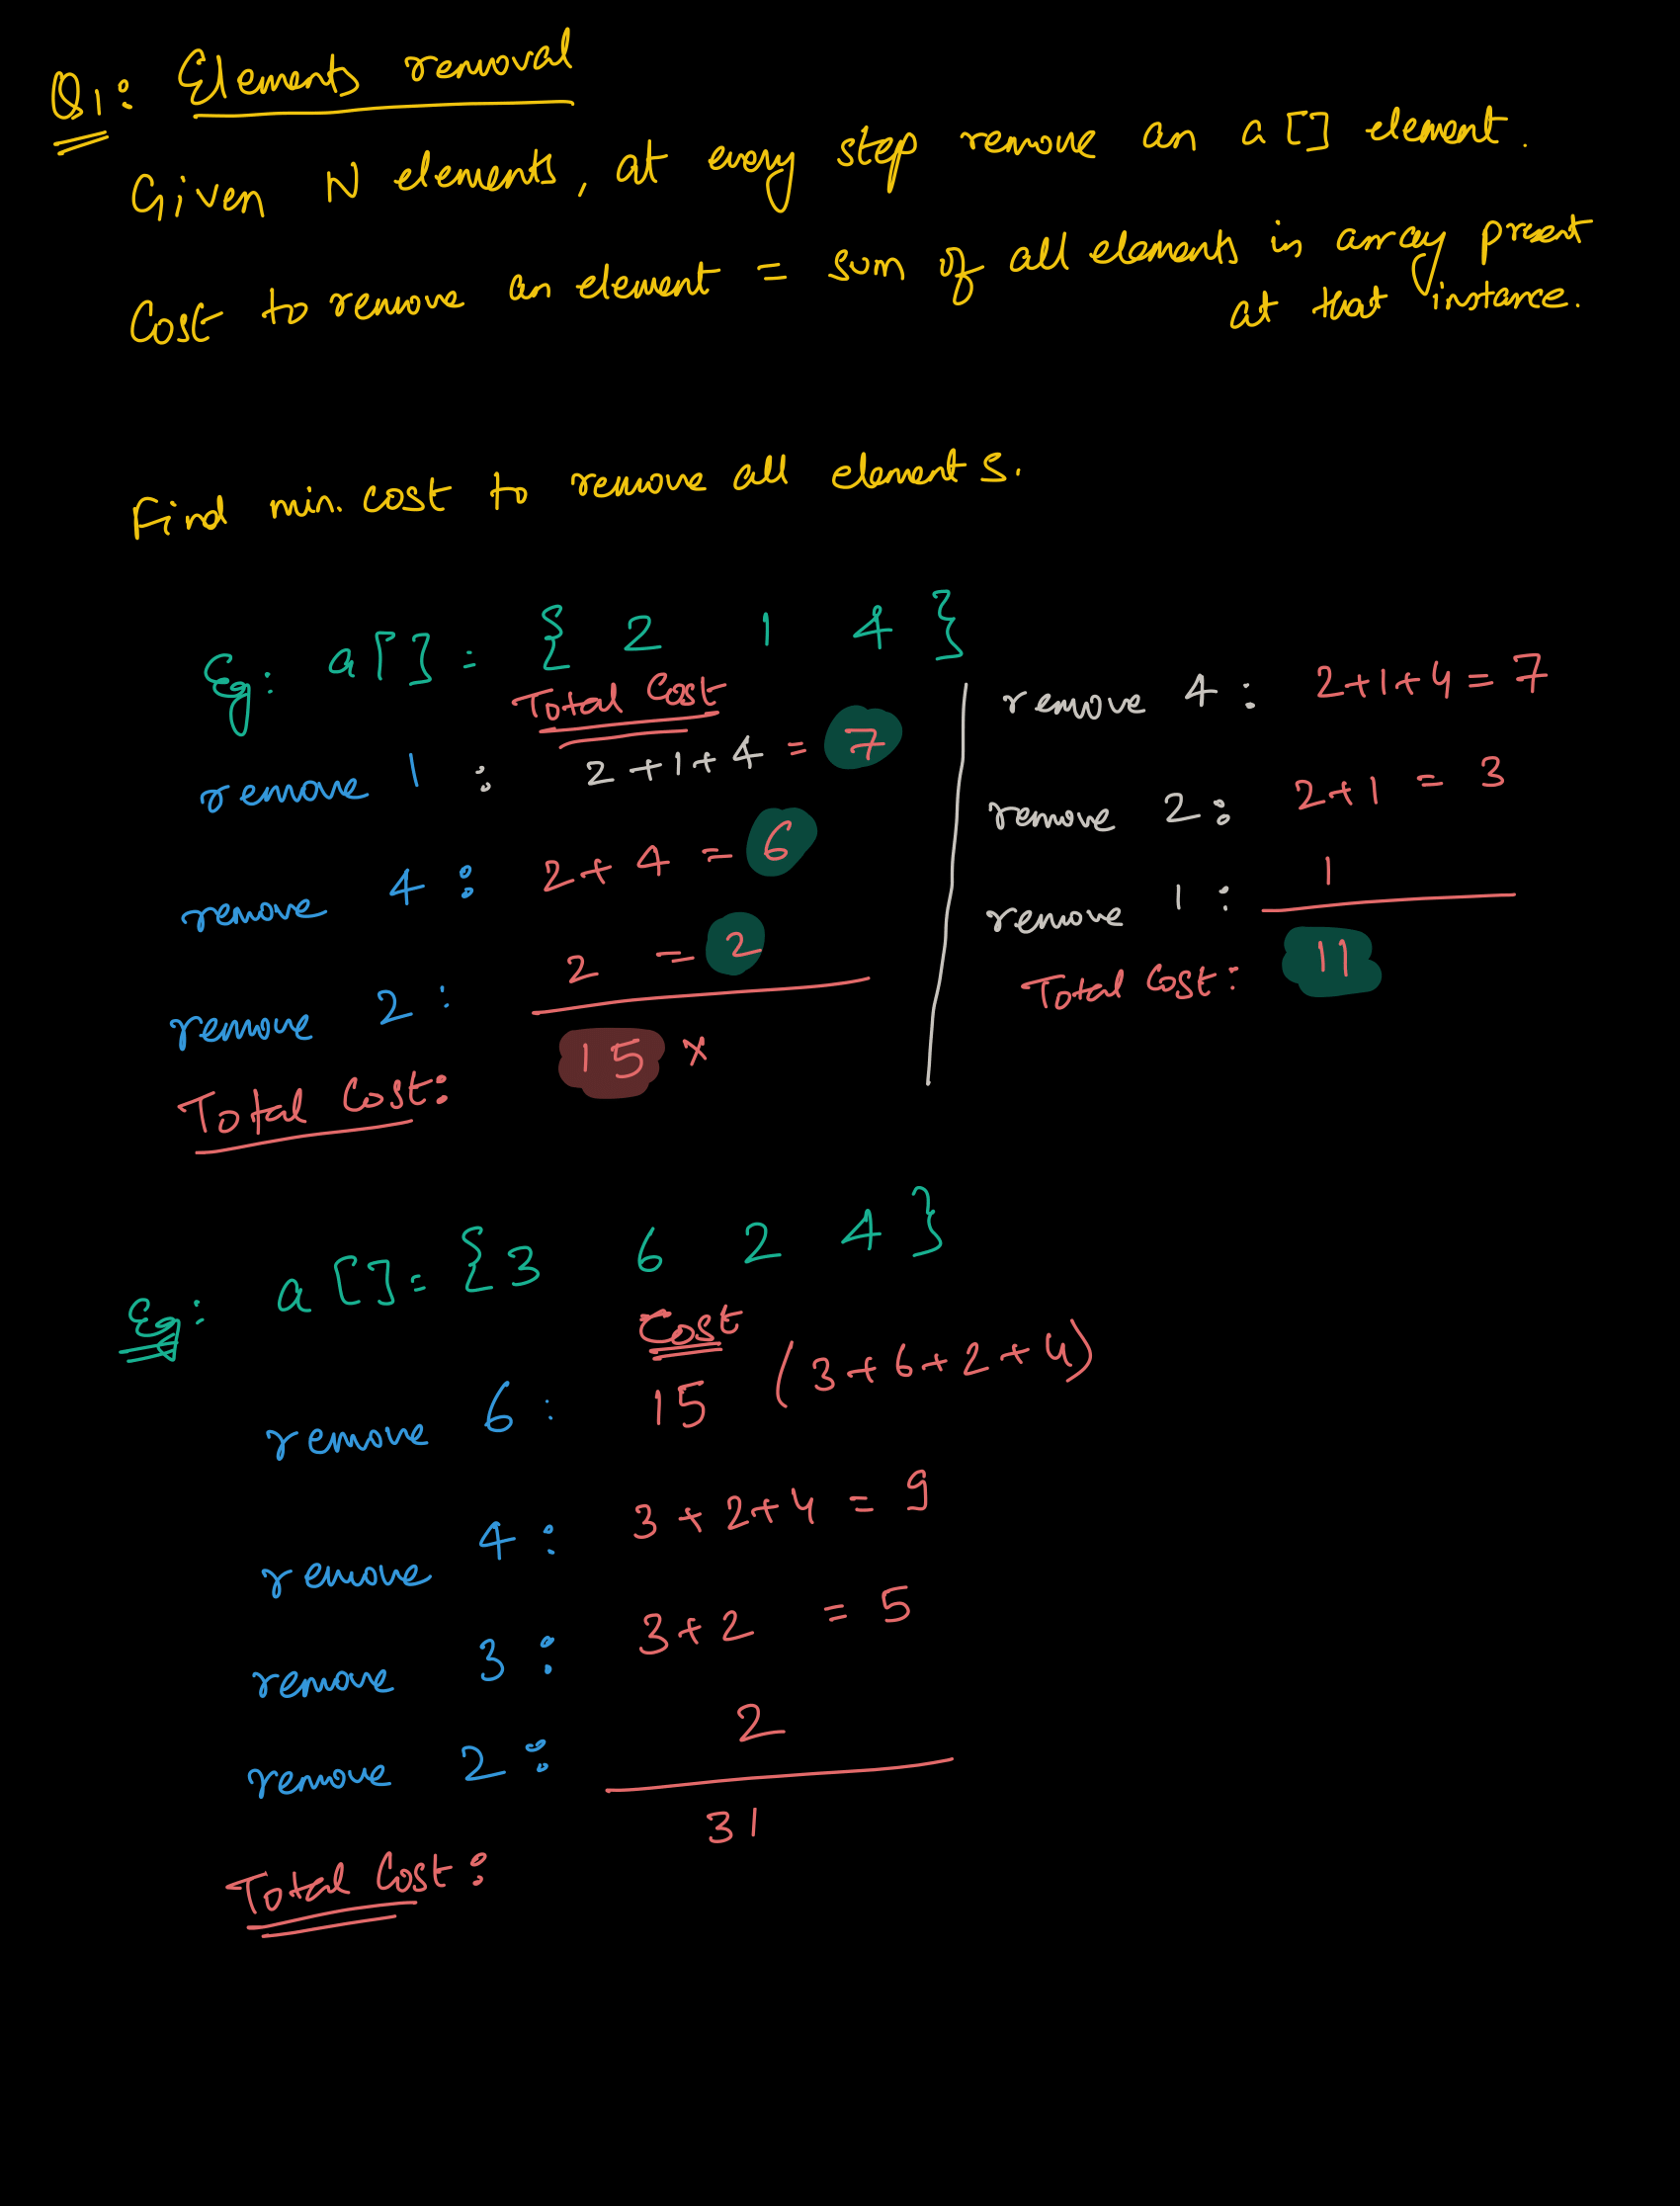 Q1: Elements removal
Given N elements, at every step remove an a[] element.
Cost to remove an element = sum of all elements in array present
at that instance.
Find min. cost to remove all elements.
Eg: a[] = { 2 1 4 }
Total Cost
remove 1 : 2+1+4 = 7
remove 4 : 2+4 = 6
remove 2 : 2 = 2
Total Cost: 15 x
remove 4 : 2+1+4 = 7
remove 2 : 2+1 = 3
remove 1 : 1
Total Cost: 11
Eg: a[] = {3 6 2 4}
Cost
remove 6 : 15 (3+6+2+4)
remove 4 : 3+2+4 = 9
remove 3 : 3+2 = 5
remove 2 : 2
31
Total Cost: